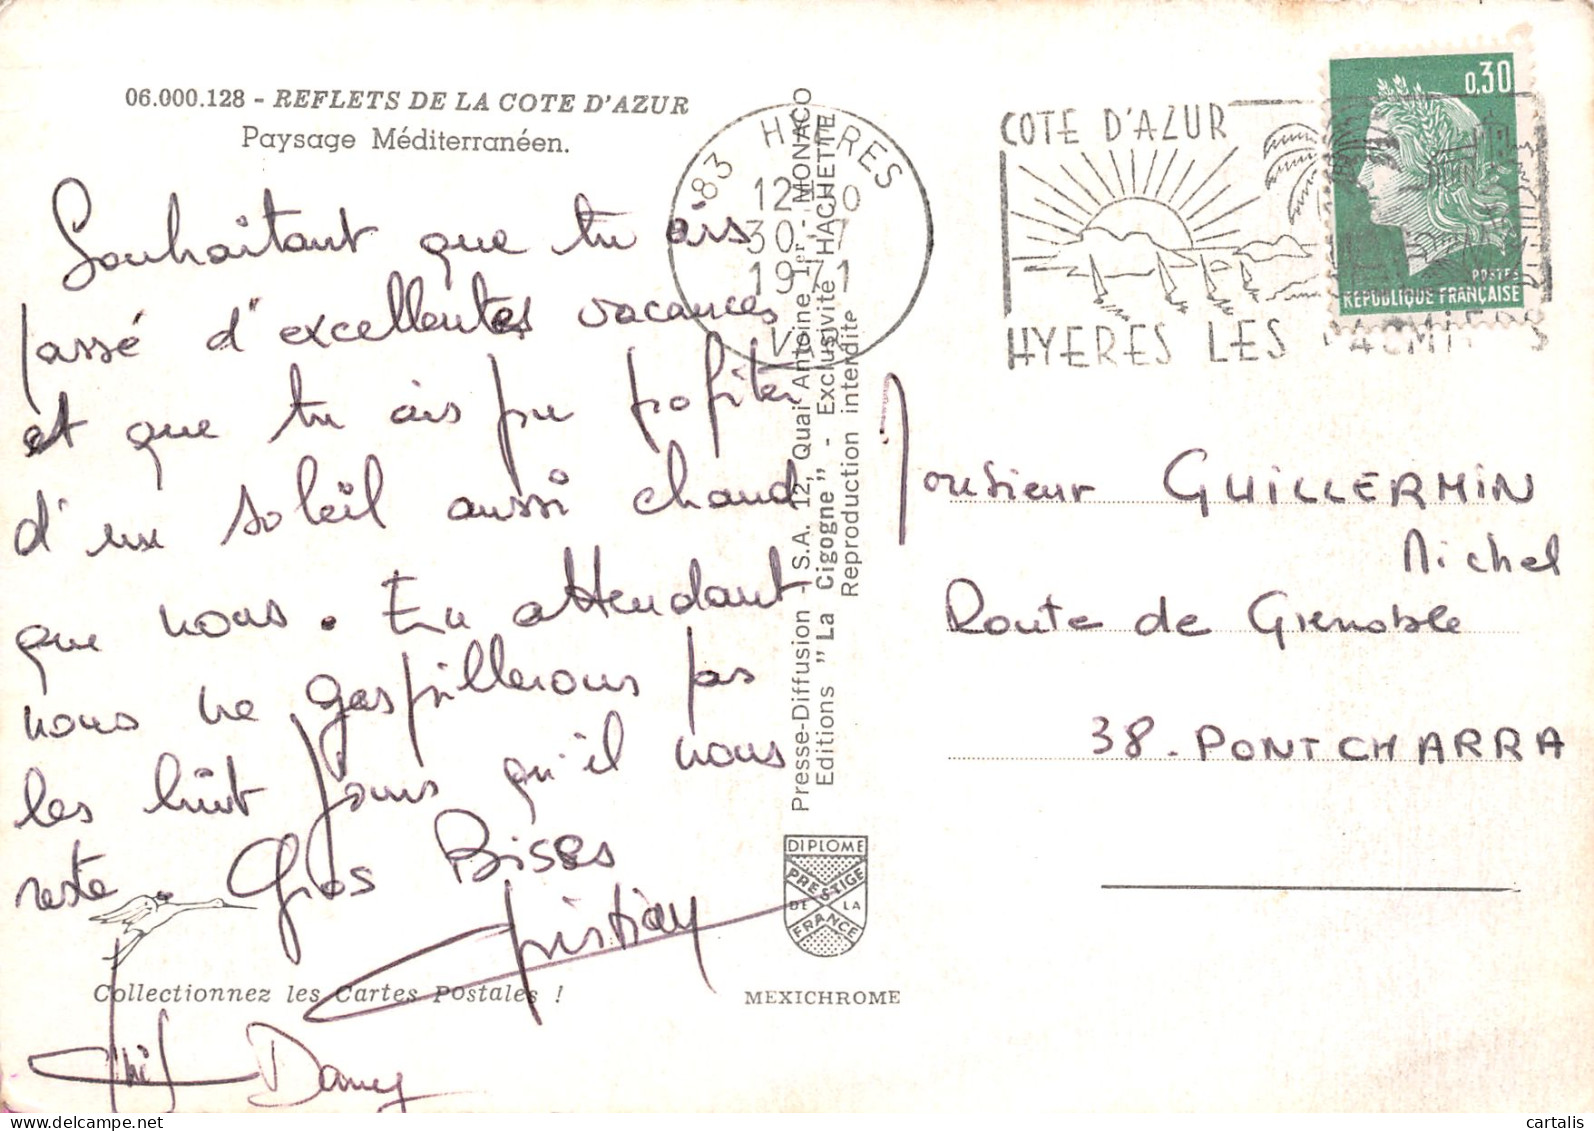 06.000.128 - REFLETS DE LA COTE D'AZUR
Paysage Méditerranéen.
Souhaitant que tu ais
passé d'excellentes vacances
et que tu ais pu profiter
d'un soleil aussi chaud
que nous. En attendant
nous ne gaspillerons pas
les huit jours qu'il nous
reste. Gros Bises
Christian
Collectionnez les Cartes Postales !
Dany
Presse-Diffusion - S.A. 12, Quai Antoine 1er - MONACO
Editions "La Cigogne" - Exclusivité HACHETTE
Reproduction interdite
DIPLOME
PRESTIGE
DE LA
FRANCE
MEXICHROME
83 HYERES
30-7
1971
VAR
COTE D'AZUR
HYERES LES PALMIERS
0,30
POSTES
REPUBLIQUE FRANÇAISE
Monsieur GUILLERMIN
Michel
Route de Grenoble
38 - PONTCHARRA
cartalis